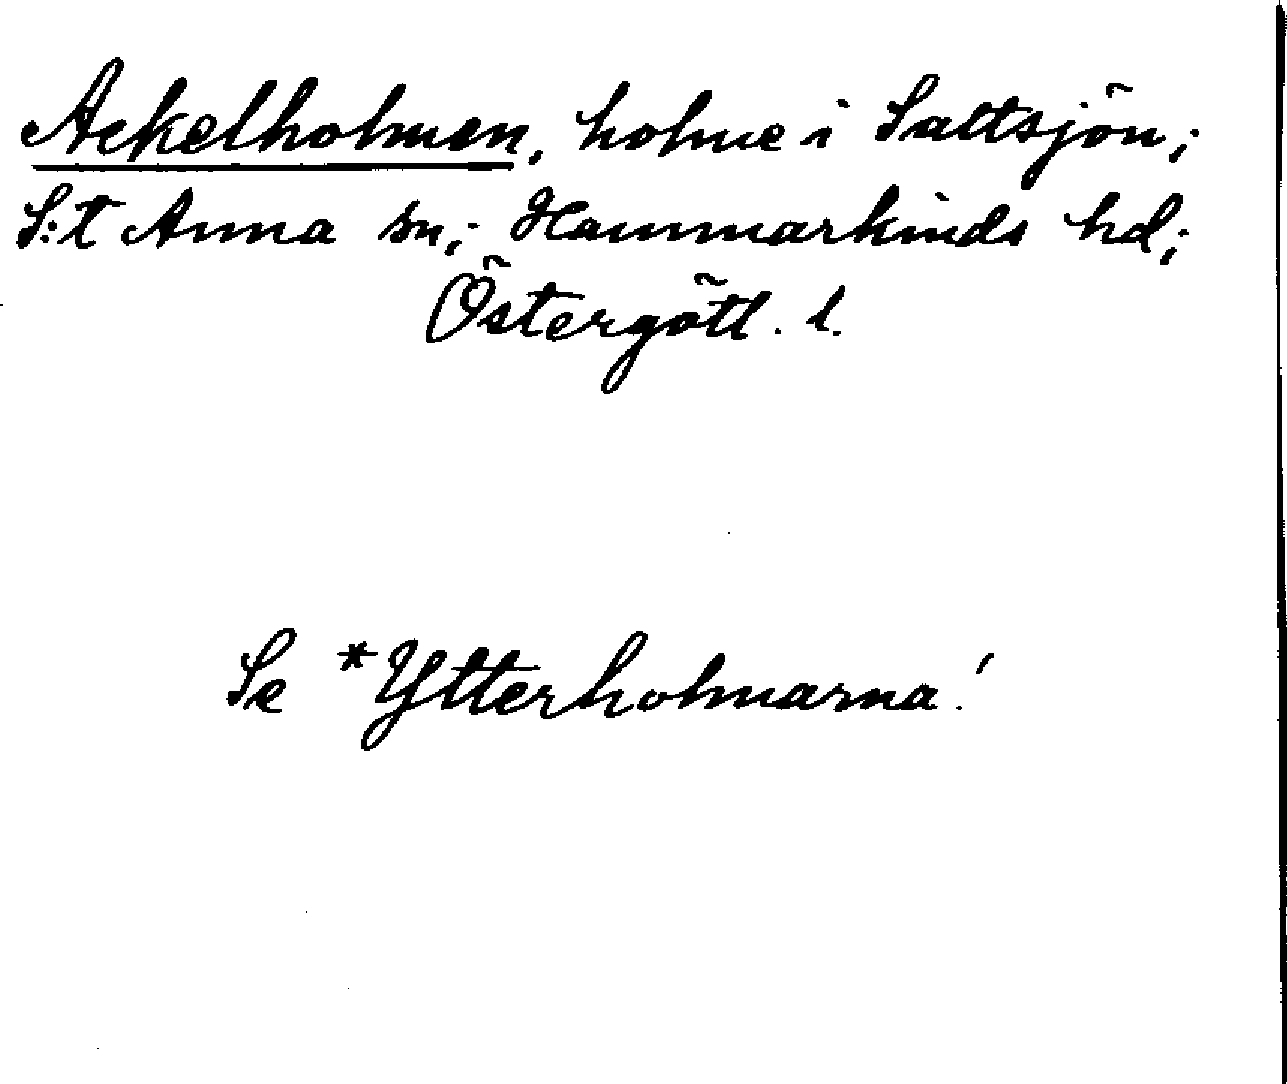 Ackelholmen, holme i Saltsjön;
S:t Anna sn; Hammarkinds hd;
Östergötl. l.
Se *Ytterholmarna!